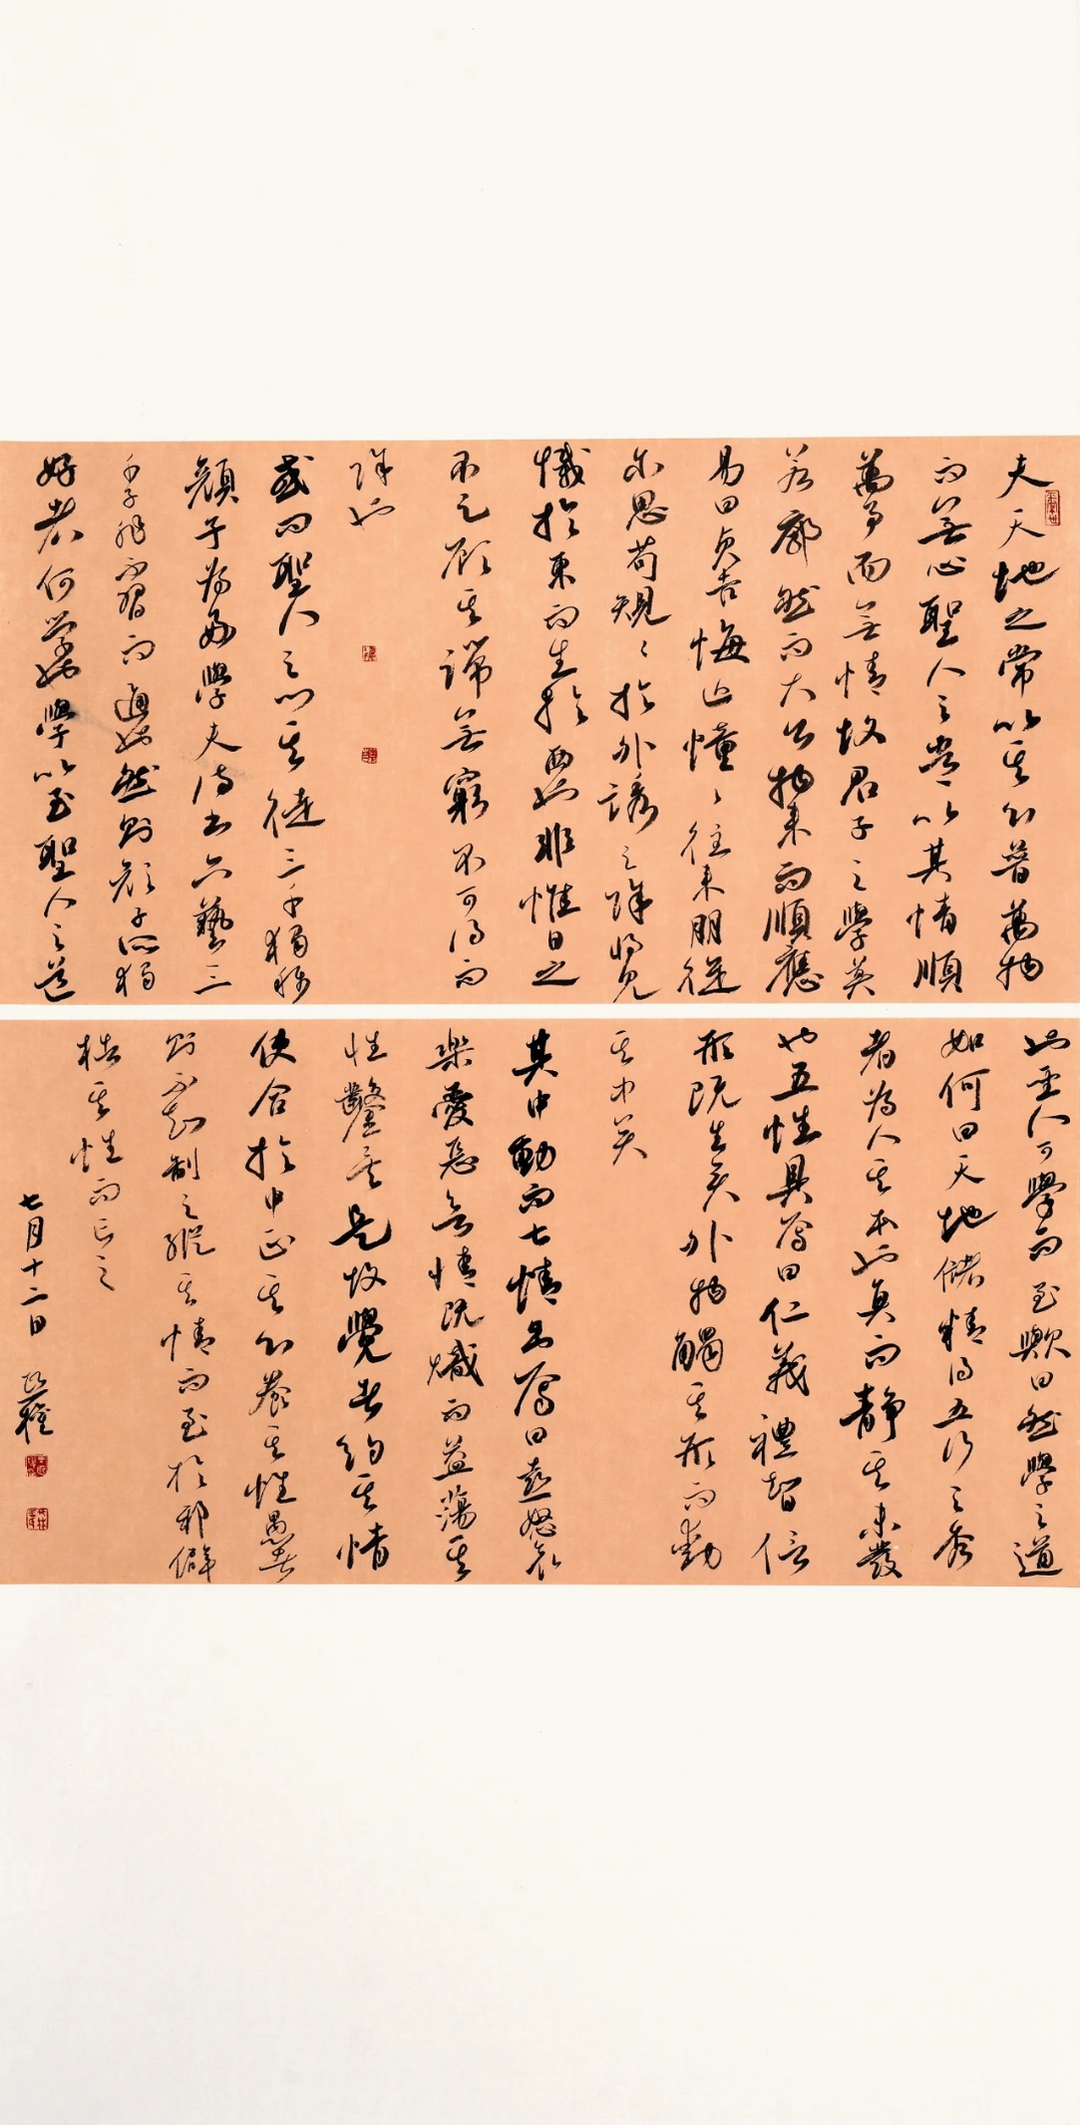 夫天地之常以其心普萬物
而無心聖人之常以其情順
萬事而無情故君子之學莫
若廓然而大公物來而順應
易曰貞吉悔亡憧憧往來朋從
尔思苟規規於外誘之除將見
滅於東而生於西也非惟日之
不足顧其端無窮不可得而
除也
或問聖人之門其徒三千獨稱
顏子為好學夫詩書六藝三
千子非不習而通也然則顏子所獨
好者何學也學以至聖人之道
也聖人可學而至歟曰然學之道
如何曰天地儲精得五行之秀
者為人其本也真而靜其未發
也五性具焉曰仁義禮智信
形既生矣外物觸其形而動
其中矣
其中動而七情出焉曰喜怒哀
樂愛惡欲情既熾而益蕩其
性鑿矣是故覺者約其情
使合於中正其心養其性愚者
則不知制之縱其情而至於邪僻
梏其性而亡之
七月十二日